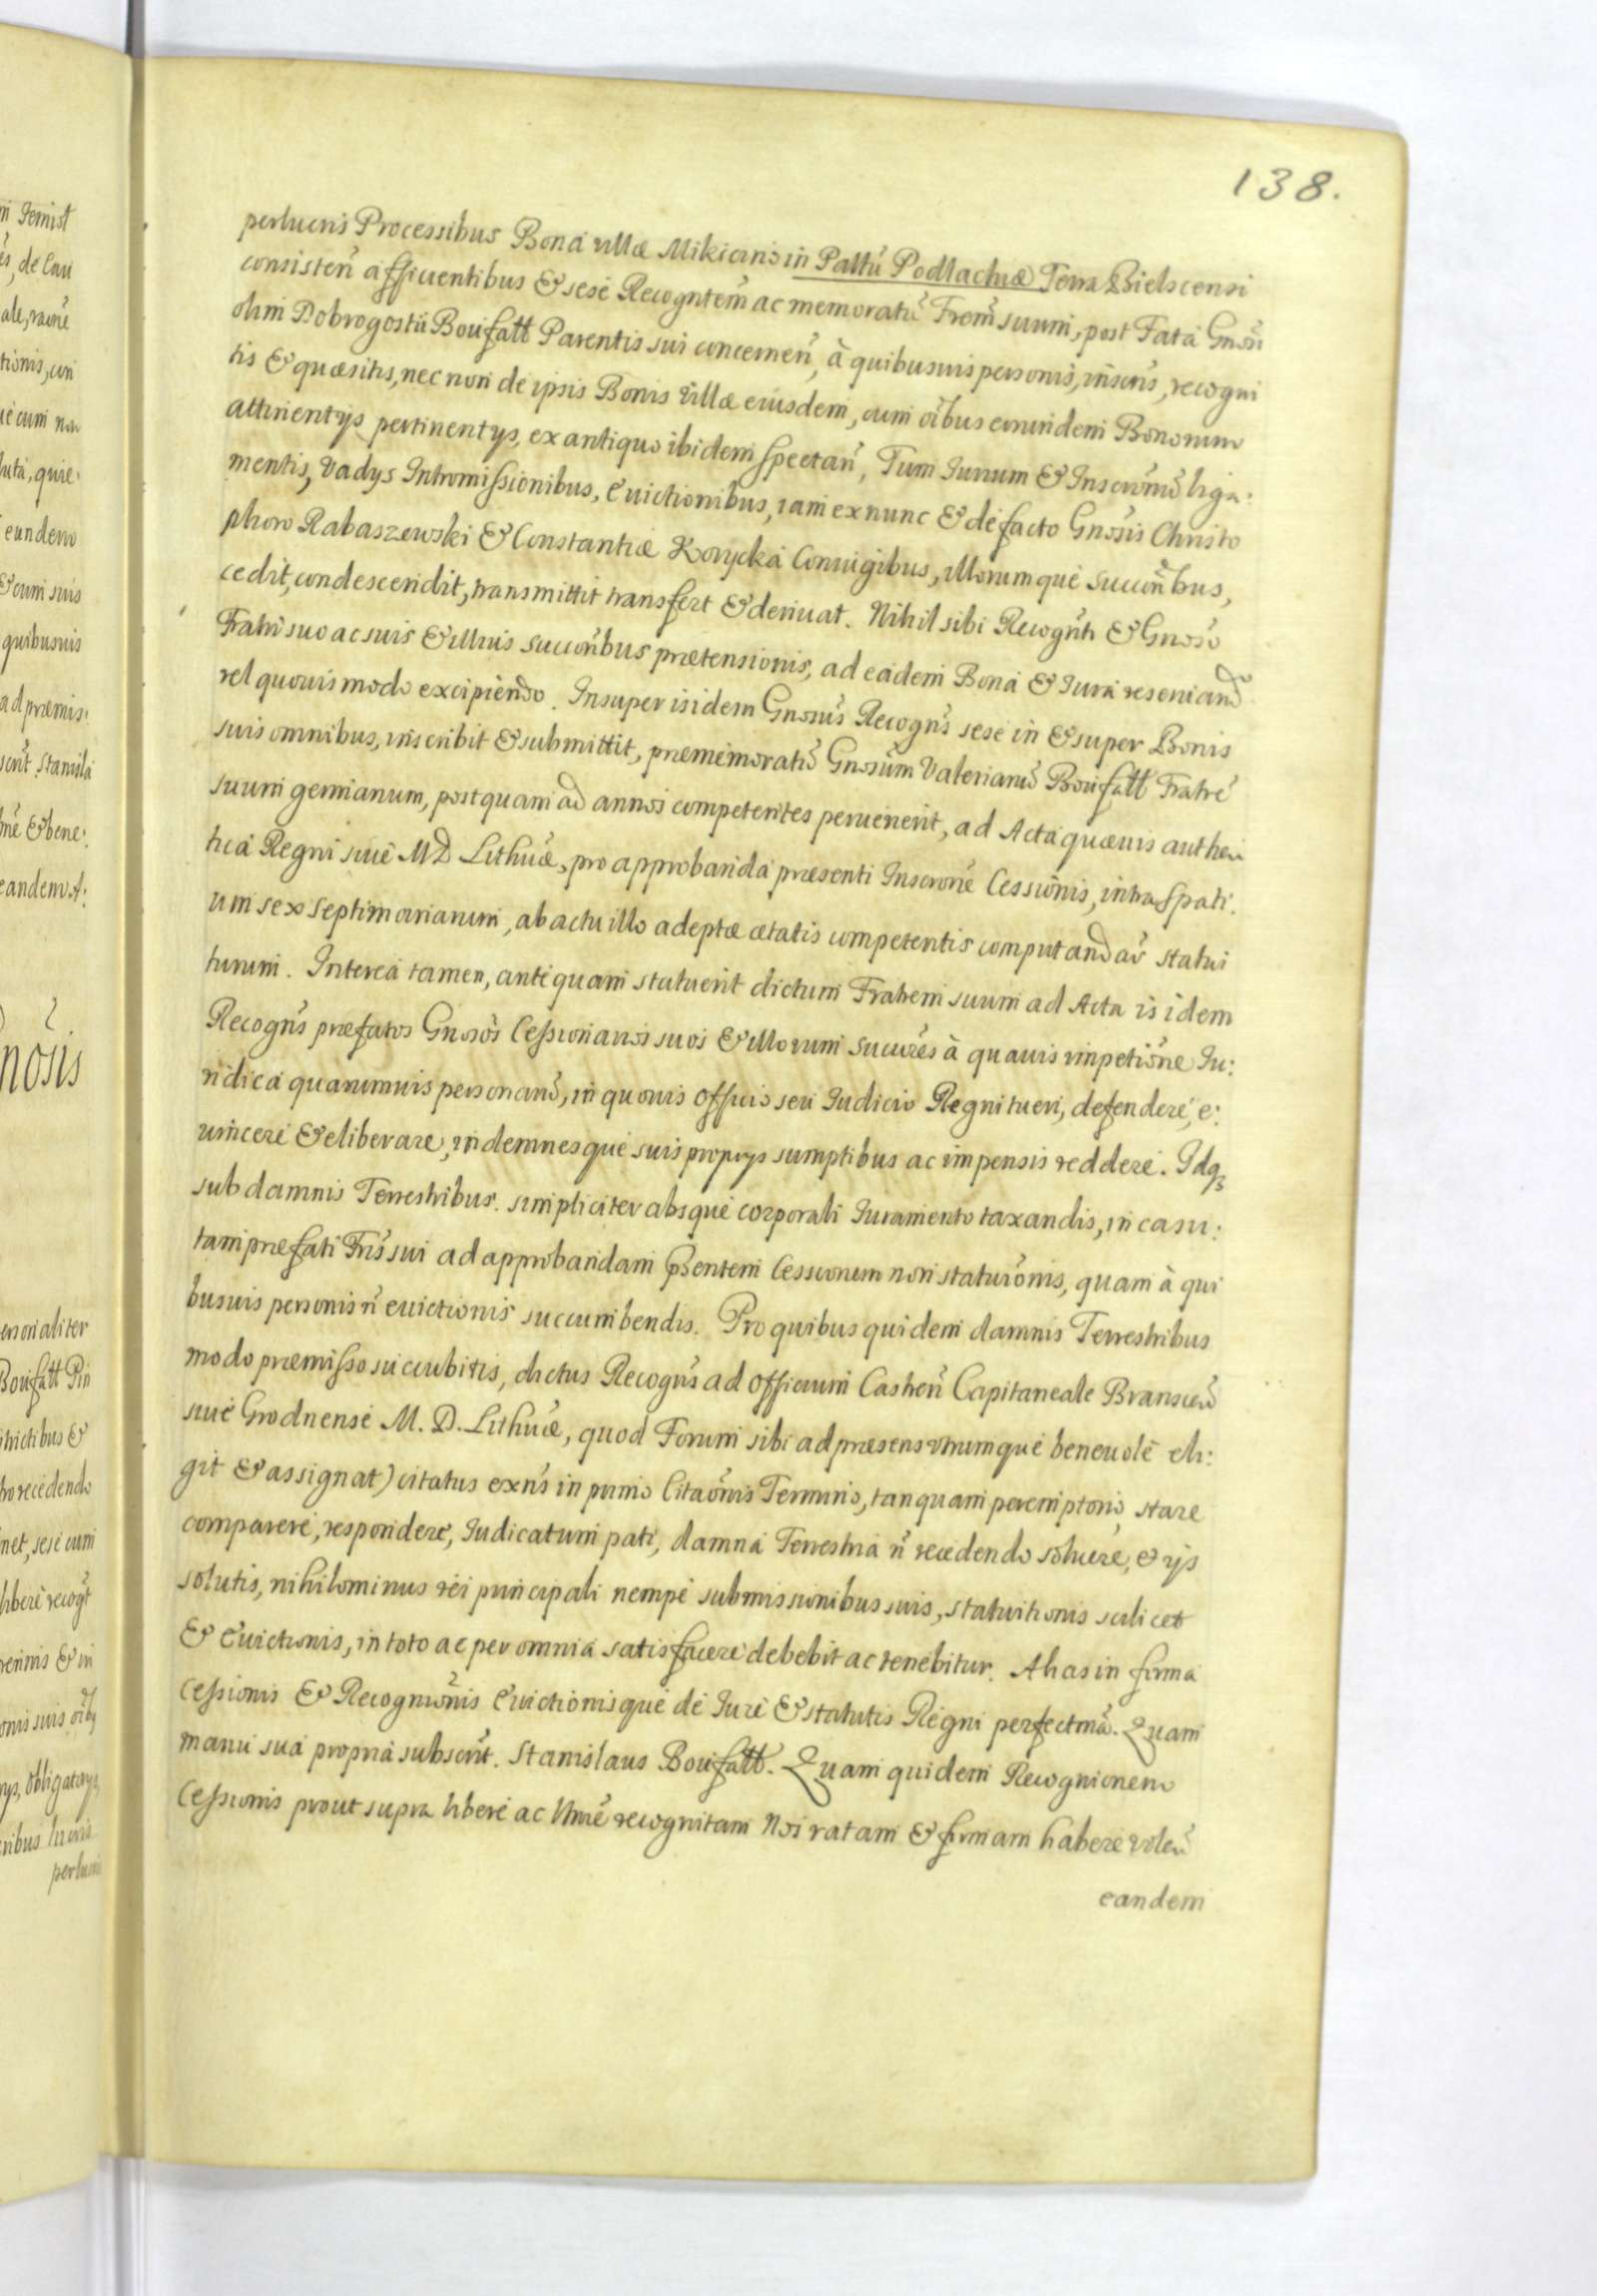 138.
perlucris Processibus Bona villæ Mikicin in Pallu Podlachiæ Terra Bielscensi
consisten afficientibus & sese Recogntem ac memoratu Frem suum, post Fata Gnosi
olim Dobrogostii Boufałł Parentis sui concernen, à quibusuis personis, inscris, recogni
tis & quæsitis, nec non de ipsis Bonis villæ eiusdem, cum oibus eorundem Bonorum
attinentys pertinentys, ex antiquo ibidem spectan, Tum Iurium & Inscrum liga:
mentis, vadys Intromissionibus, euictionibus, iam ex nunc & de facto Gnosis Christo
phoro Rabaszewski & Constantiæ Korycka Coniugibus, illorumque succoribus,
cedit, condescendit, transmittit transfert & deriuat. Nihil sibi Recognti & Gnoso
Fratri suo ac suis & illius succoribus prætensionis, ad eadem Bona & Iura reseruando
vel quouis modo excipiendo. Insuper is idem Gnosus Recogns sese in & super Bonis
suis omnibus, inscribit & submittit, præmemoratu Gnosum Valerianu Boufałł Fratre
suum germanum, postquam ad annos competentes peruenerit, ad Acta quæuis authen
tica Regni siue MD Lithuæ, pro approbanda præsenti Inscrone Cessionis, intra spati:
um sex septimanarum, ab actu illo adeptæ ætatis competentis computandar statui
turum. Interea tamen, antequam statuerit dictum Fratrem suum ad Acta is idem
Recogns præfatos Gnosos Cessionarios suos & illorum succres à quauis impetione Iu:
ridica quarumuis personaru, in quouis officio seu Iudicio Regni tueri, defendere, e:
uincere & eliberare, indemnesque suis proprys sumptibus ac impensis reddere. Idq
sub damnis Terrestribus simpliciter absque corporali Iuramento taxandis, in casu:
tam præfati Fris sui ad approbandam psentem Cessionem non staturonis, quam à qui
busuis personis n euictionis succumbendis. Pro quibus quidem damnis Terrestribus
modo præmisso succubitis, dictus Recogns ad officium Castren Capitaneale Branscen
siue Grodnense M. D. Lithuæ, quod Forum sibi ad præsens vtrumque beneuole eli:
git & assignat) citatus exns in primo Citaonis Termino, tanquam peremptorio, stare
comparere, respondere, Iudicatum pati, damna Terrestria n recedendo soluere, & ijs
solutis, nihilominus rei principali nempe submissionibus suis, statuitionis scilicet
& euictionis, in toto ac per omnia satisfacere debebit ac tenebitur. Alias in forma
Cessionis & Recognionis euictionisque de Iure & statutis Regni perfectma. Quam
manu sua propria subscrit. Stanislaus Boufałł. Quam quidem Recognionem
Cessionis prout supra libere ac bme recognitam Nos ratam & firmam habere volen
eandem